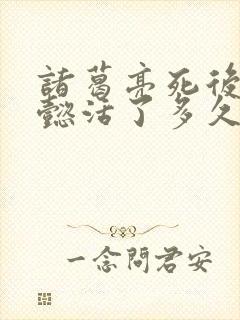 諸葛亮死後
懿活了多久
一念問君安